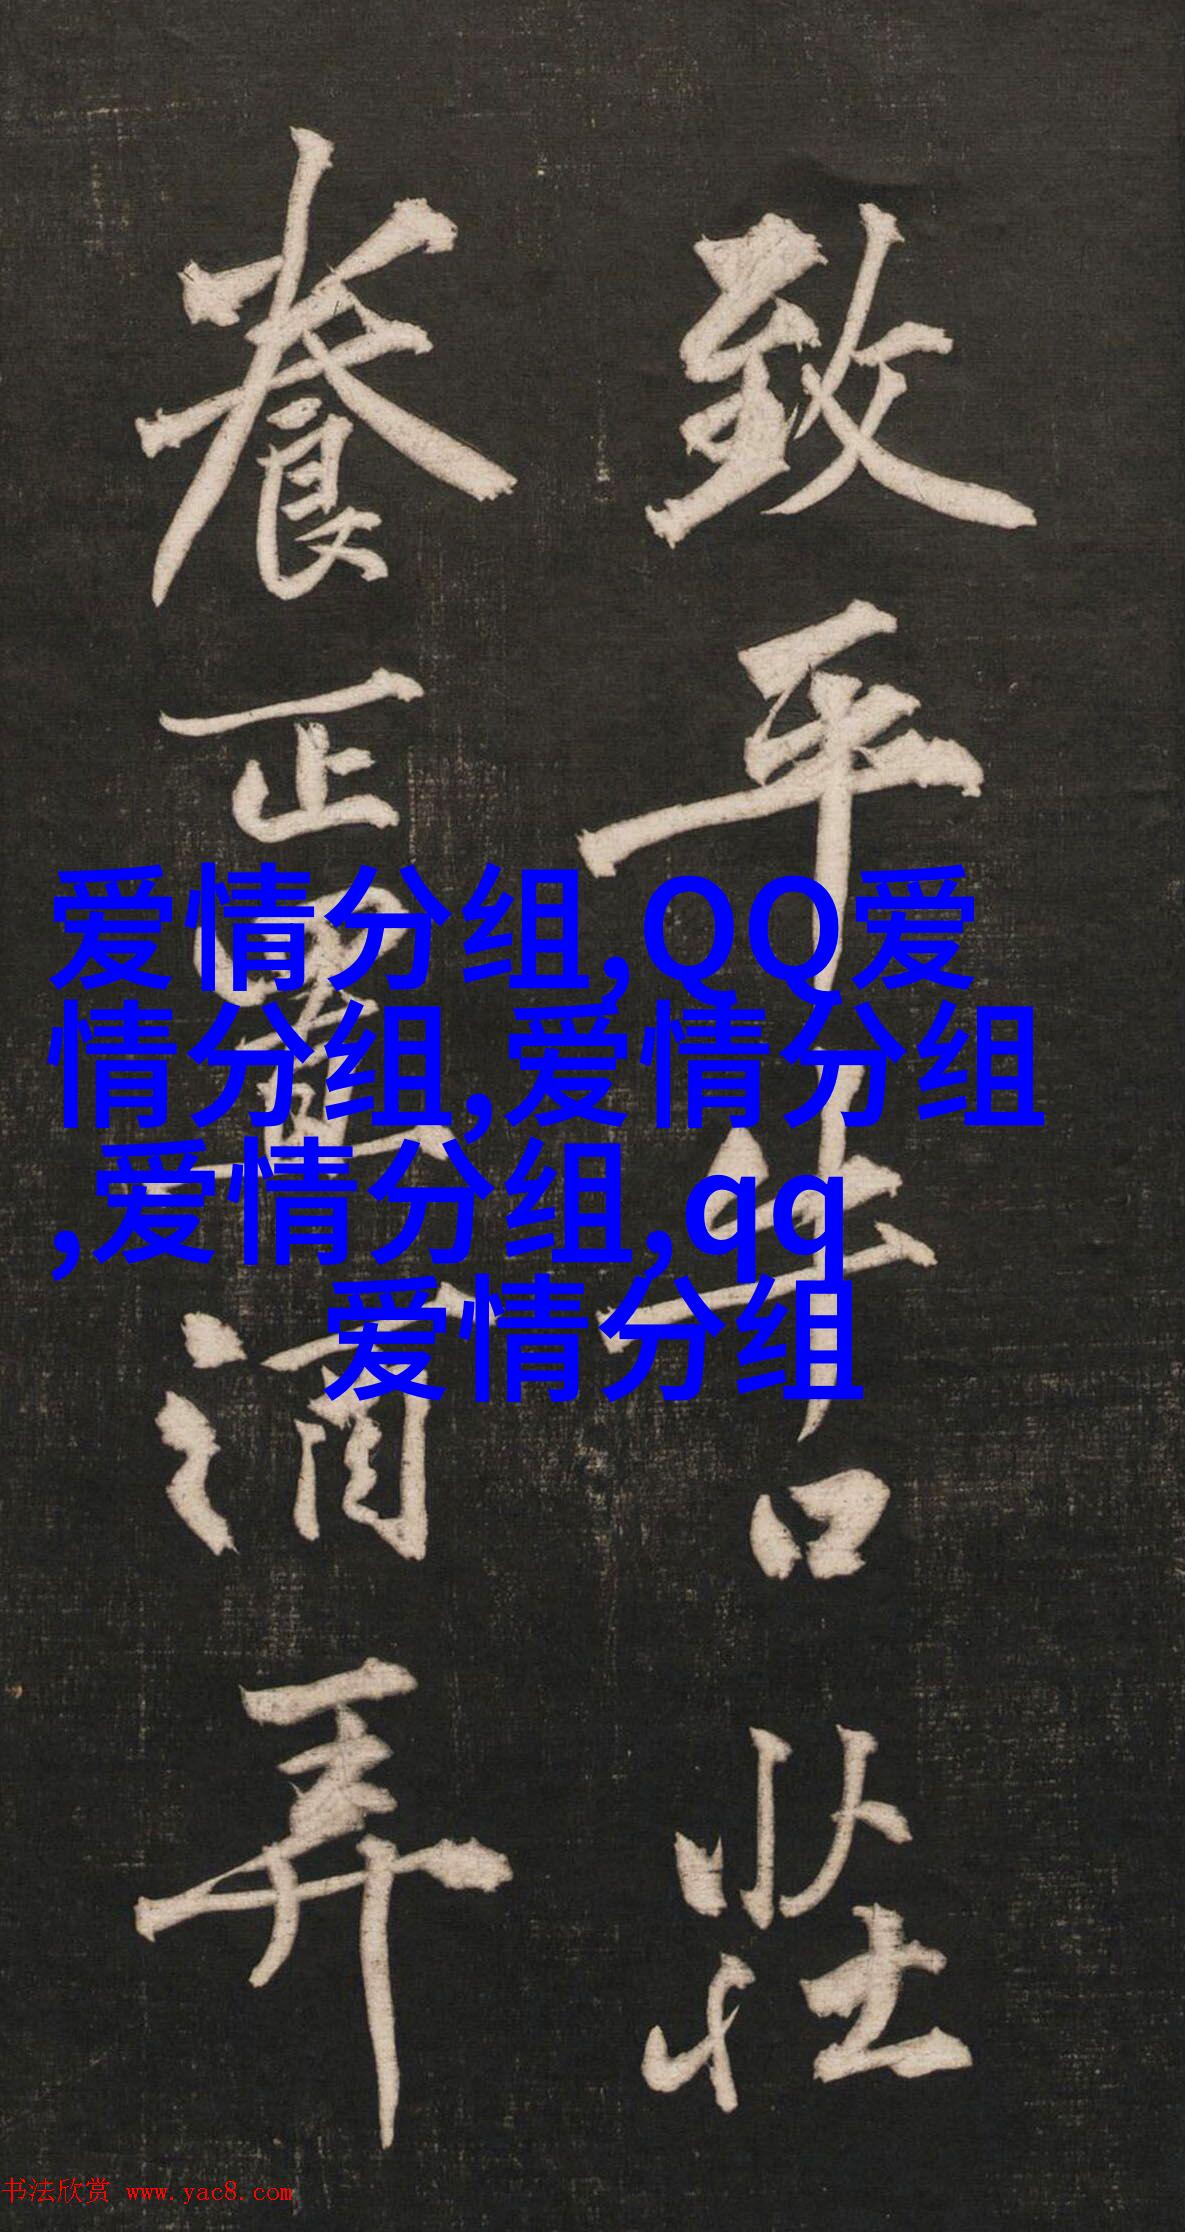 致平生占壯
養正置酒弄
爱情分组,QQ爱
情分组,爱情分组
,爱情分组,qq
爱情分组
书法欣赏 www.yac8.com